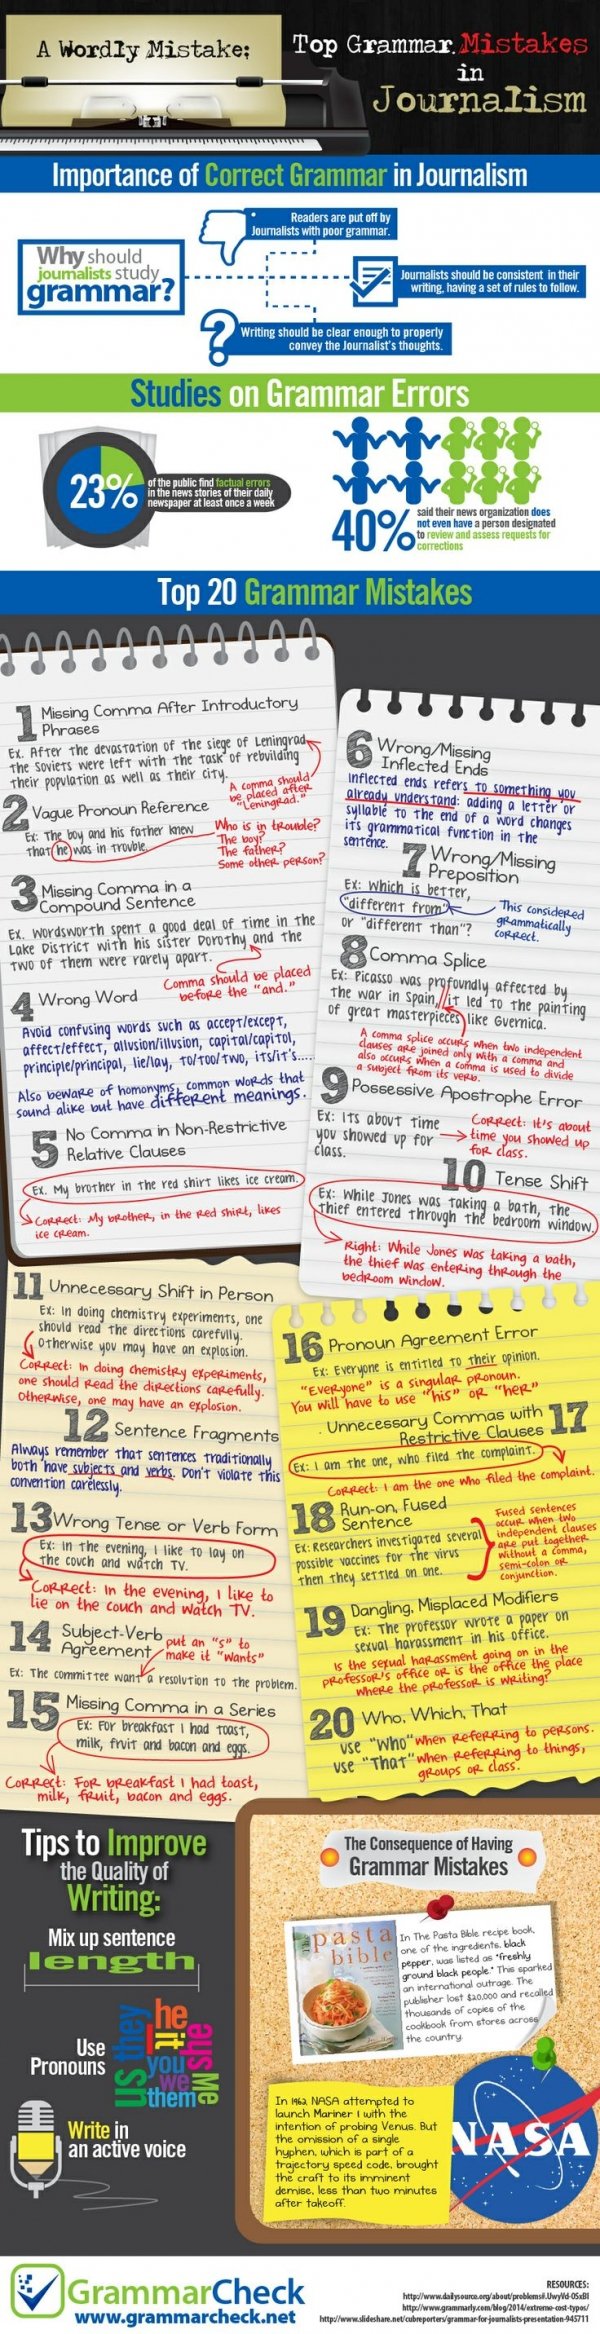 A Wordly Mistake:
Top Grammar Mistakes
in
Journalism
Importance of Correct Grammar in Journalism
Why should
journalists study
grammar?
Readers are put off by
Journalists with poor grammar.
Journalists should be consistent in their
writing, having a set of rules to follow.
Writing should be clear enough to properly
convey the Journalist's thoughts.
Studies on Grammar Errors
23%
of the public find factual errors
in the news stories of their daily
newspaper at least once a week
40%
said their news organization does
not even have a person designated
to review and assess requests for
corrections
Top 20 Grammar Mistakes
1 Missing Comma After Introductory
Phrases
Ex. After the devastation of the siege of Leningrad
the Soviets were left with the task of rebuilding
their population as well as their city.
A comma should
be placed after
"Leningrad."
2 Vague Pronoun Reference
Ex: The boy and his father knew
that he was in trouble.
Who is in trouble?
The boy?
The father?
Some other person?
3 Missing Comma in a
Compound Sentence
Ex. Wordsworth spent a good deal of time in the
Lake District with his sister Dorothy and the
two of them were rarely apart.
Comma should be placed
before the "and."
4 Wrong Word
Avoid confusing words such as accept/except,
affect/effect, allusion/illusion, capital/capitol,
principle/principal, lie/lay, to/too/two, its/it's.....
Also beware of homonyms, common words that
sound alike but have different meanings.
5 No Comma in Non-Restrictive
Relative Clauses
Ex. My brother in the red shirt likes ice cream.
Correct: My brother, in the red shirt, likes
ice cream.
6 Wrong/Missing
Inflected Ends
Inflected ends refers to something you
already understand: adding a letter or
syllable to the end of a word changes
its grammatical function in the
sentence.
7 Wrong/Missing
Preposition
Ex: Which is better,
"different from"
or "different than"?
This considered
grammatically
correct.
8 Comma Splice
Ex: Picasso was profoundly affected by
the war in Spain, it led to the painting
of great masterpieces like Guernica.
A comma splice occurs when two independent
clauses are joined only with a comma and
also occurs when a comma is used to divide
a subject from its verb.
9 Possessive Apostrophe Error
Ex: Its about time
you showed up for
class.
Correct: It's about
time you showed up
for class.
10 Tense Shift
Ex: While Jones was taking a bath, the
thief entered through the bedroom window.
Right: While Jones was taking a bath,
the thief was entering through the
bedroom window.
11 Unnecessary Shift in Person
Ex: In doing chemistry experiments, one
should read the directions carefully.
Otherwise you may have an explosion.
Correct: In doing chemistry experiments,
one should read the directions carefully.
Otherwise, one may have an explosion.
12 Sentence Fragments
Always remember that sentences traditionally
both have subjects and verbs. Don't violate this
convention carelessly.
13 Wrong Tense or Verb Form
Ex: In the evening, I like to lay on
the couch and watch TV.
Correct: In the evening, I like to
lie on the couch and watch TV.
14 Subject-Verb
Agreement
put an "s" to
make it "wants"
Ex: The committee want a resolution to the problem.
15 Missing Comma in a Series
Ex: For breakfast I had toast,
milk, fruit and bacon and eggs.
Correct: For breakfast I had toast,
milk, fruit, bacon and eggs.
16 Pronoun Agreement Error
Ex: Everyone is entitled to their opinion.
"Everyone" is a singular pronoun.
You will have to use "his" or "her"
Unnecessary Commas with 17
Restrictive Clauses
Ex: I am the one, who filed the complaint.
Correct: I am the one who filed the complaint.
18 Run-on, Fused
Sentence
Ex: Researchers investigated several
possible vaccines for the virus
then they settled on one.
Fused sentences
occur when two
independent clauses
are put together
without a comma,
semi-colon or
conjunction.
19 Dangling, Misplaced Modifiers
Ex: The professor wrote a paper on
sexual harassment in his office.
Is the sexual harassment going on in the
professor's office or is the office the place
where the professor is writing?
20 Who, Which, That
use "Who" when referring to persons.
use "That" when referring to things,
groups or class.
Tips to Improve
the Quality of
Writing:
Mix up sentence
length
Use
Pronouns
us
they
he
it
you
we
them
she
Me
Write in
an active voice
The Consequence of Having
Grammar Mistakes
pasta
bible
In The Pasta Bible recipe book,
one of the ingredients, black
pepper, was listed as "freshly
ground black people." This sparked
an international outrage. The
publisher lost $20,000 and recalled
thousands of copies of the
cookbook from stores across
the country.
In 1962, NASA attempted to
launch Mariner 1 with the
intention of probing Venus. But
the omission of a single
hyphen, which is part of a
trajectory speed code, brought
the craft to its imminent
demise, less than two minutes
after takeoff.
NASA
GrammarCheck
www.grammarcheck.net
RESOURCES:
http://www.dailysource.org/about/problems#.UwyVd-OSxBI
http://www.grammarly.com/blog/2014/extreme-cost-typos/
http://www.slideshare.net/cubreporters/grammar-for-journalists-presentation-945711